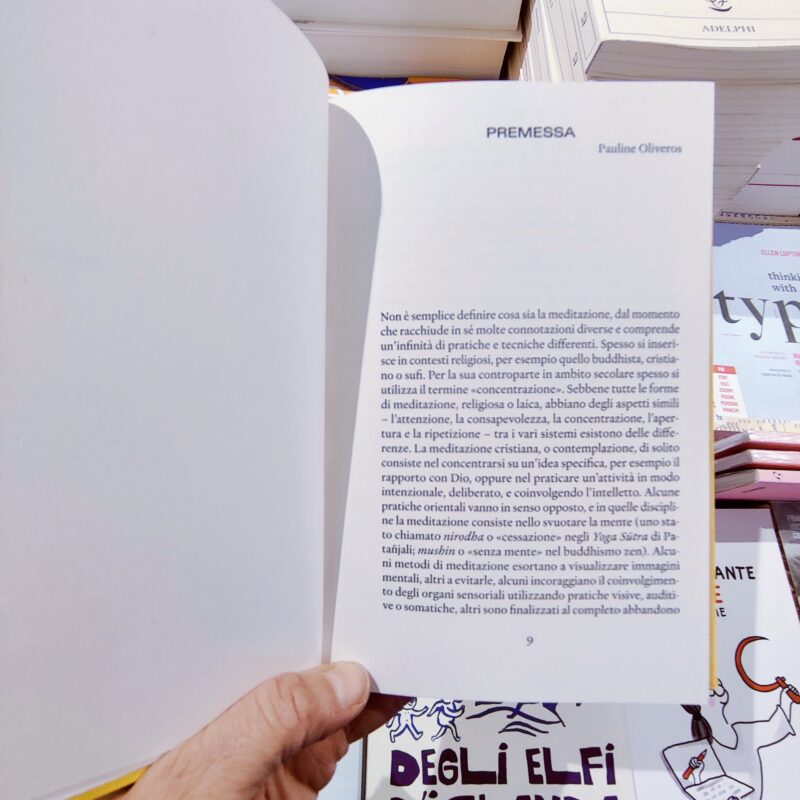 ADELPHI
PREMESSA
Pauline Oliveros
Non è semplice definire cosa sia la meditazione, dal momento
che racchiude in sé molte connotazioni diverse e comprende
un'infinità di pratiche e tecniche differenti. Spesso si inseri-
sce in contesti religiosi, per esempio quello buddhista, cristia-
no o sufi. Per la sua controparte in ambito secolare spesso si
utilizza il termine «concentrazione». Sebbene tutte le forme
di meditazione, religiosa o laica, abbiano degli aspetti simili
– l'attenzione, la consapevolezza, la concentrazione, l'aper-
tura e la ripetizione – tra i vari sistemi esistono delle diffe-
renze. La meditazione cristiana, o contemplazione, di solito
consiste nel concentrarsi su un'idea specifica, per esempio il
rapporto con Dio, oppure nel praticare un'attività in modo
intenzionale, deliberato, e coinvolgendo l'intelletto. Alcune
pratiche orientali vanno in senso opposto, e in quelle discipli-
ne la meditazione consiste nello svuotare la mente (uno sta-
to chiamato nirodha o «cessazione» negli Yoga Sūtra di Pa-
tañjali; mushin o «senza mente» nel buddhismo zen). Alcu-
ni metodi di meditazione esortano a visualizzare immagini
mentali, altri a evitarle, alcuni incoraggiano il coinvolgimen-
to degli organi sensoriali utilizzando pratiche visive, auditi-
ve o somatiche, altri sono finalizzati al completo abbandono
9
ELLEN LUPTON
thinki
with
typ
ANTE
E
NE
DEGLI ELFI